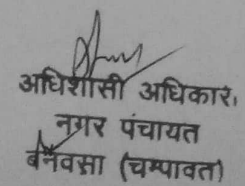 अधिशासी अधिकार।
नगर पंचायत
बनवसा (चम्पावत)